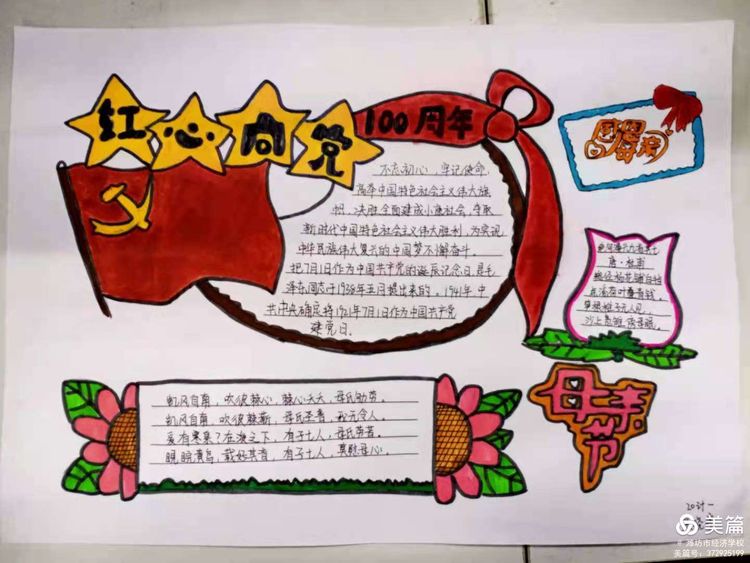 红心向党
100周年
不忘初心,牢记使命,
高举中国特色社会主义伟大旗
帜,决胜全面建成小康社会,夺取
新时代中国特色社会主义伟大胜利,为实现
中华民族伟大复兴的中国梦不懈奋斗。
把7月1日作为中国共产党的诞辰纪念日是毛
泽东同志于1938年五月提出来的,1941年中
共中央确定将1921年7月1日作为中国共产党
建党日。
感恩
唐·杜甫
糁径杨花铺白毡
点溪荷叶叠青钱,
沙上凫雏傍母眠。
母亲节
凯风自南,吹彼棘心,棘心夭夭,母氏劬劳。
凯风自南,吹彼棘薪,母氏圣善,我无令人。
爰有寒泉?在浚之下,有子七人,母氏劳苦。
睍睆黄鸟,载好其音,有子七人,莫慰母心。
20计一
美篇
潍坊市经济学校
美篇号:372925199